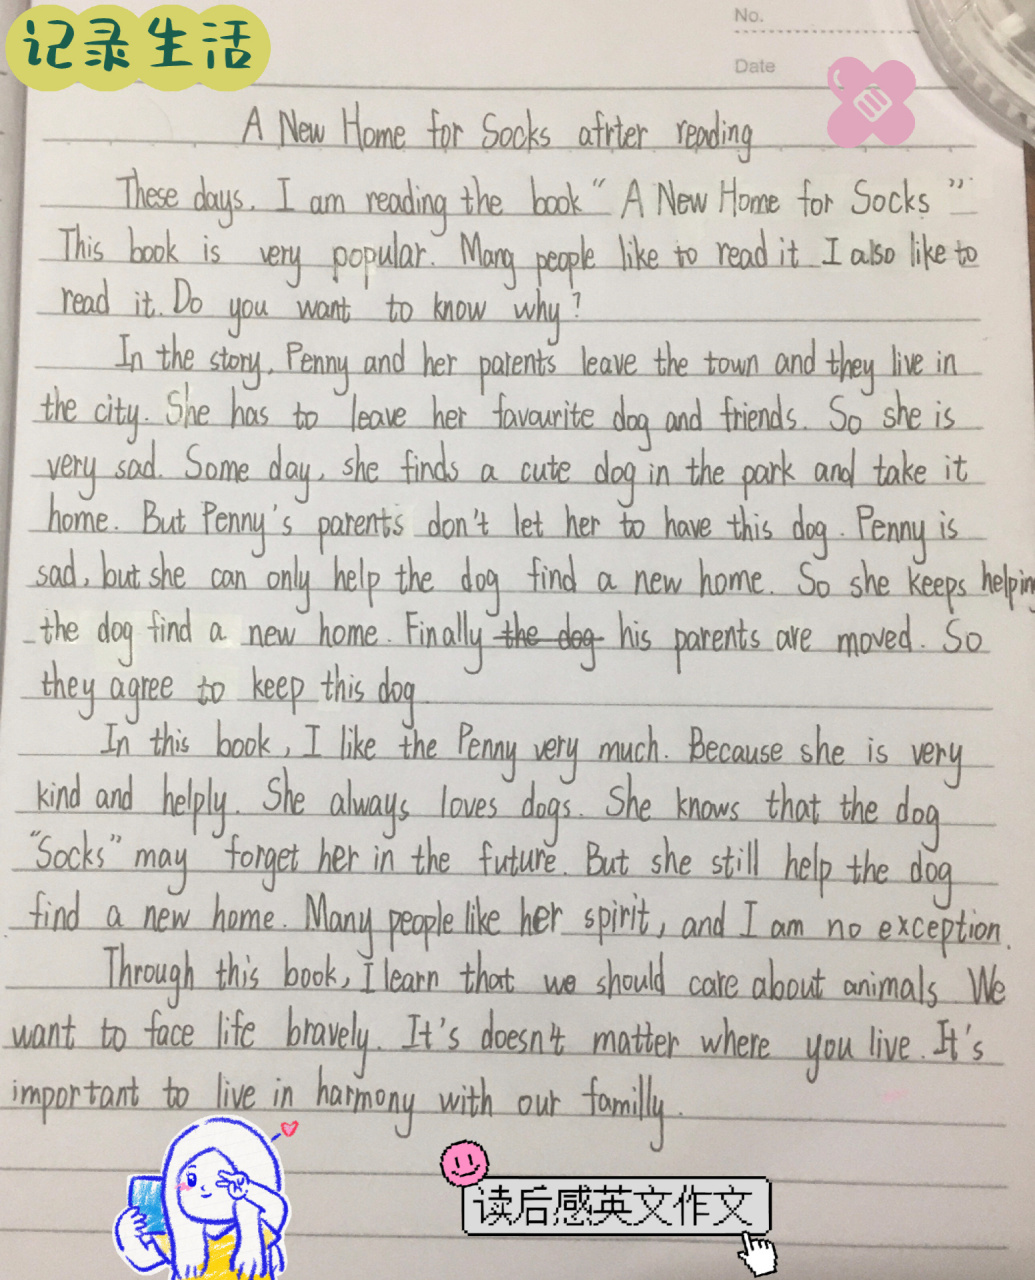 记录生活
No.
Date
A New Home for Socks afrter reading
These days. I am reading the book “ A New Home for Socks ”
This book is very popular. Mang people like to read it I also like to
read it. Do you want to know why?
In the story, Penny and her parents leave the town and they live in
the city. She has to leave her favourite dog and friends. So she is
very sad. Some day, she finds a cute dog in the park and take it
home. But Penny's parents don't let her to have this dog. Penny is
sad, but she can only help the dog find a new home. So she keeps helping
the dog find a new home. Finally the dog his parents are moved. So
they agree to keep this dog
In this book, I like the Penny very much. Because she is very
kind and helply. She always loves dogs. She knows that the dog
“Socks” may forget her in the future. But she still help the dog
find a new home. Many people like her spirit, and I am no exception.
Through this book, I learn that we should care about animals. We
want to face life bravely. It's doesn't matter where you live. It's
important to live in harmony with our familly.
读后感英文作文